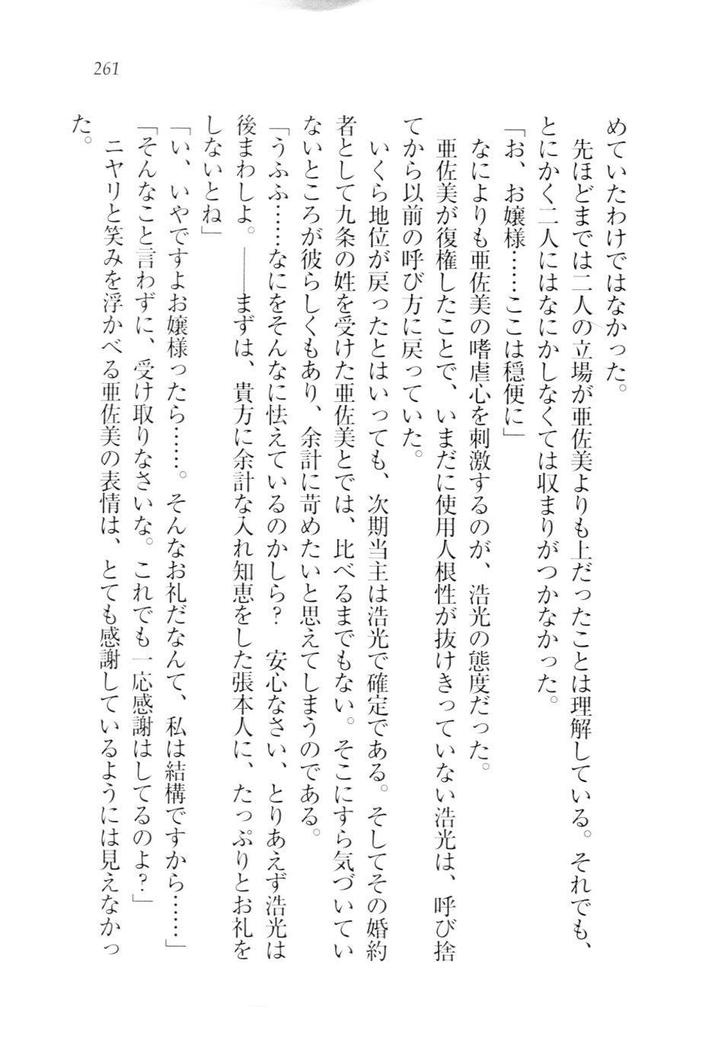 261
めていたわけではなかった。
先ほどまでは二人の立場が亜佐美よりも上だったことは理解している。それでも、
とにかく二人にはなにかしなくては収まりがつかなかった。
「お、お嬢様……ここは穏便に」
なによりも亜佐美の嗜虐心を刺激するのが、浩光の態度だった。
亜佐美が復権したことで、いまだに使用人根性が抜けきっていない浩光は、呼び捨
てから以前の呼び方に戻っていた。
いくら地位が戻ったとはいっても、次期当主は浩光で確定である。そしてその婚約
者として九条の姓を受けた亜佐美とでは、比べるまでもない。そこにすら気づいてい
ないところが彼らしくもあり、余計に苛めたいと思えてしまうのである。
「うふふ……なにをそんなに怯えているのかしら？　安心なさい、とりあえず浩光は
後まわしよ。――まずは、貴方に余計な入れ知恵をした張本人に、たっぷりとお礼を
しないとね」
「い、いやですよお嬢様ったら……。そんなお礼だなんて、私は結構ですから……」
「そんなこと言わずに、受け取りなさいな。これでも一応感謝はしてるのよ？」
ニヤリと笑みを浮かべる亜佐美の表情は、とても感謝しているようには見えなかっ
た。